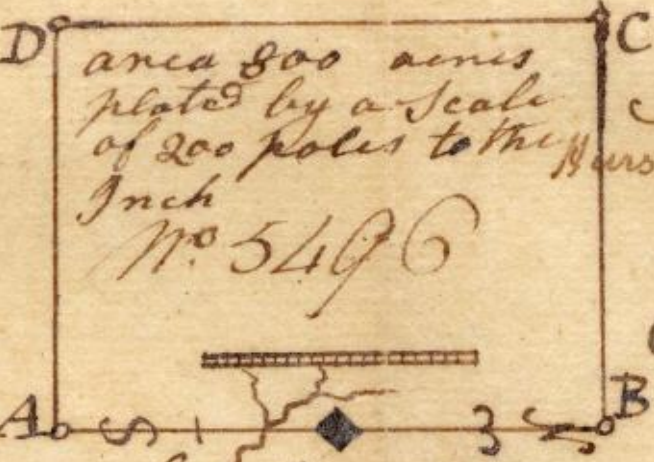 D C
area 800 acres
plated by a Scale
of 200 poles to the
Inch
No 5496
A B